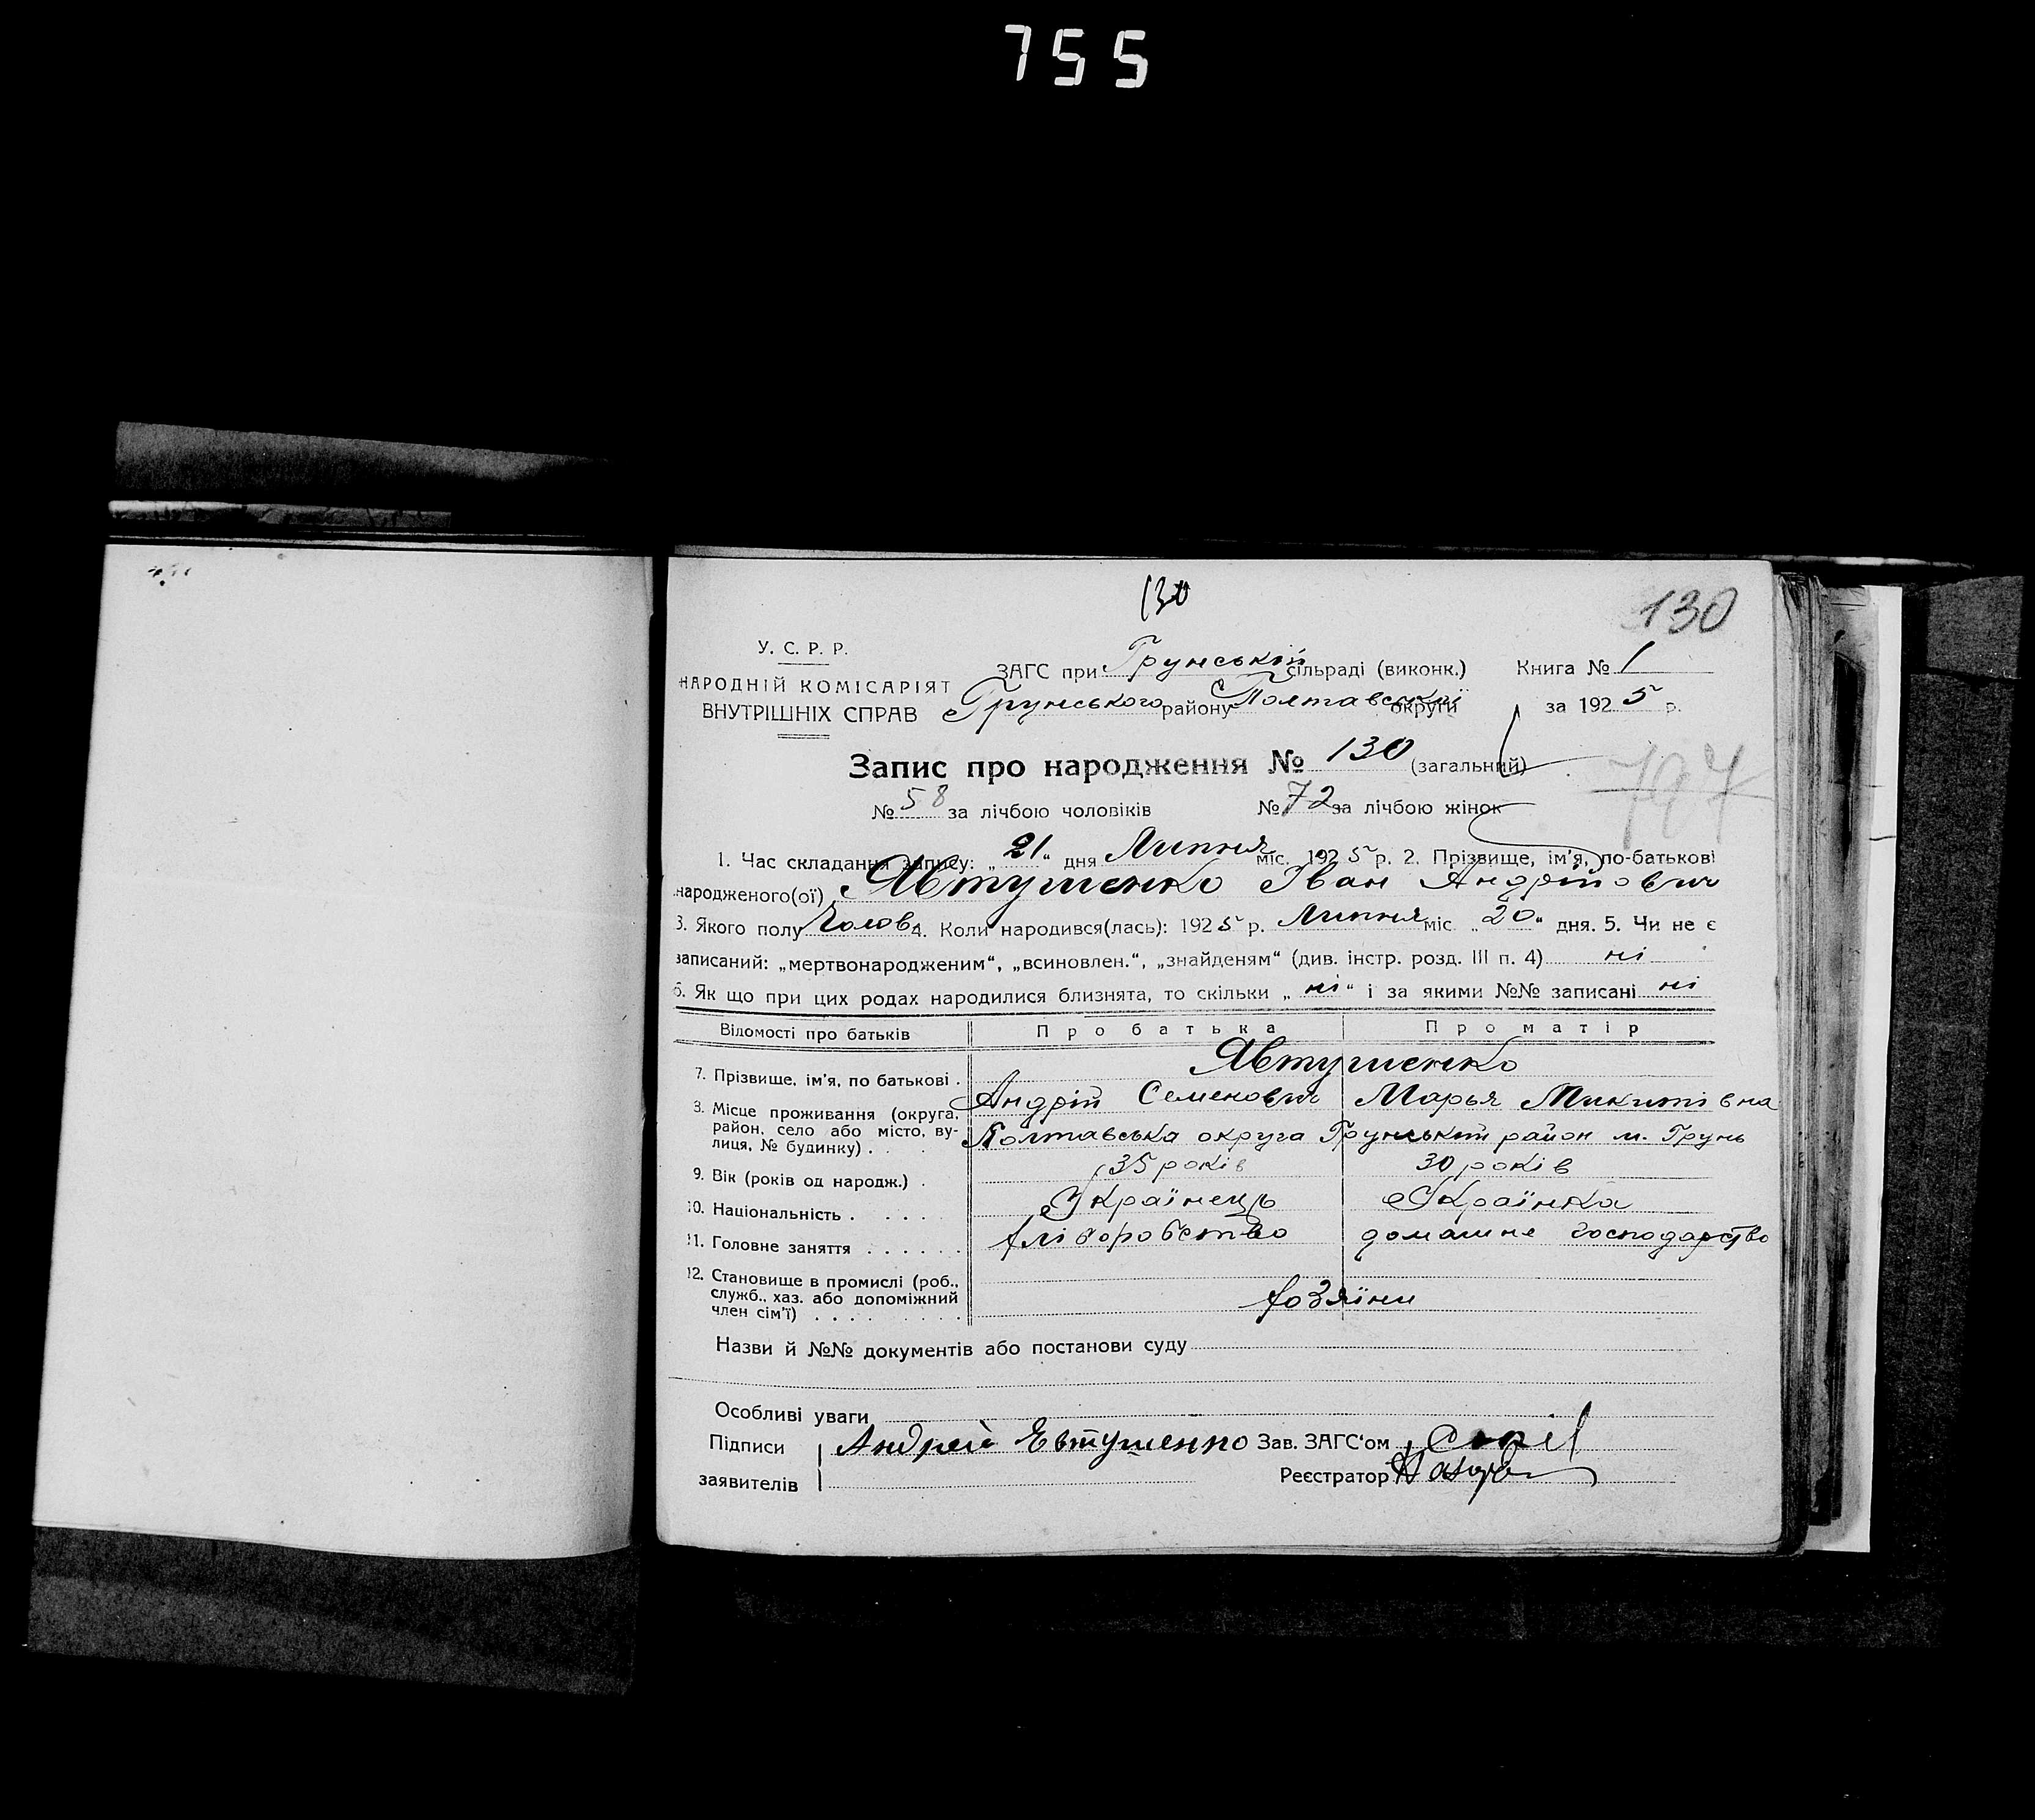 755
130
130
У. С. Р. Р.
НАРОДНІЙ КОМІСАРІЯТ
ВНУТРІШНІХ СПРАВ
ЗАГС при Грунській сільраді (виконк.) Книга № 1
Грунського району Полтавської округи за 1925 р.
Запис про народження № 130 (загальний)
797
№ 58 за лічбою чоловіків № 72 за лічбою жінок
1. Час складання запису: „21“ дня Липня міс. 1925 р. 2. Прізвище, ім'я, по-батькові
народженого(ої) Явтушенко Іван Андрійович
3. Якого полу Чолов. 4. Коли народився(лась): 1925 р. Липня міс. „20“ дня. 5. Чи не є
записаний: „мертвонародженим“, „всиновлен.“, „знайденям“ (див. інстр. розд. III п. 4) ні
6. Як що при цих родах народилися близнята, то скільки „ні“ і за якими №№ записані ні
Відомості про батьків Про батька Про матір
Явтушенко
7. Прізвище, ім'я, по батькові . Андрій Семенович Марья Микитівна
8. Місце проживання (округа,
район, село або місто, ву-
лиця, № будинку) . . . Полтавська округа Грунський район м. Грунь
9. Вік (років од народж.) . 35 років 30 років
10. Національність . . . . . Українець Українка
11. Головне заняття . . . . . . хліборобство домашне господарство
12. Становище в промислі (роб.,
служб., хаз. або допоміжний
член сім'ї) . . . . . . . . Хозяїни
Назви й №№ документів або постанови суду
Особливі уваги
Підписи Андрей Евтушенко Зав. ЗАГС'ом
заявителів Реєстратор